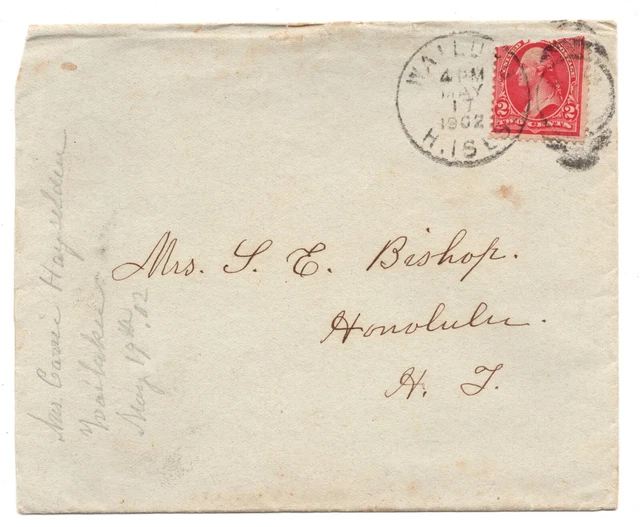 WAILUKU
4 PM
MAY
17
1902
H. ISL'DS
2 TWO CENTS 2
Mrs. S. E. Bishop.
Honolulu.
H. T.
Mrs. Cassie Hayselden
Wailuku
May 17th. 02